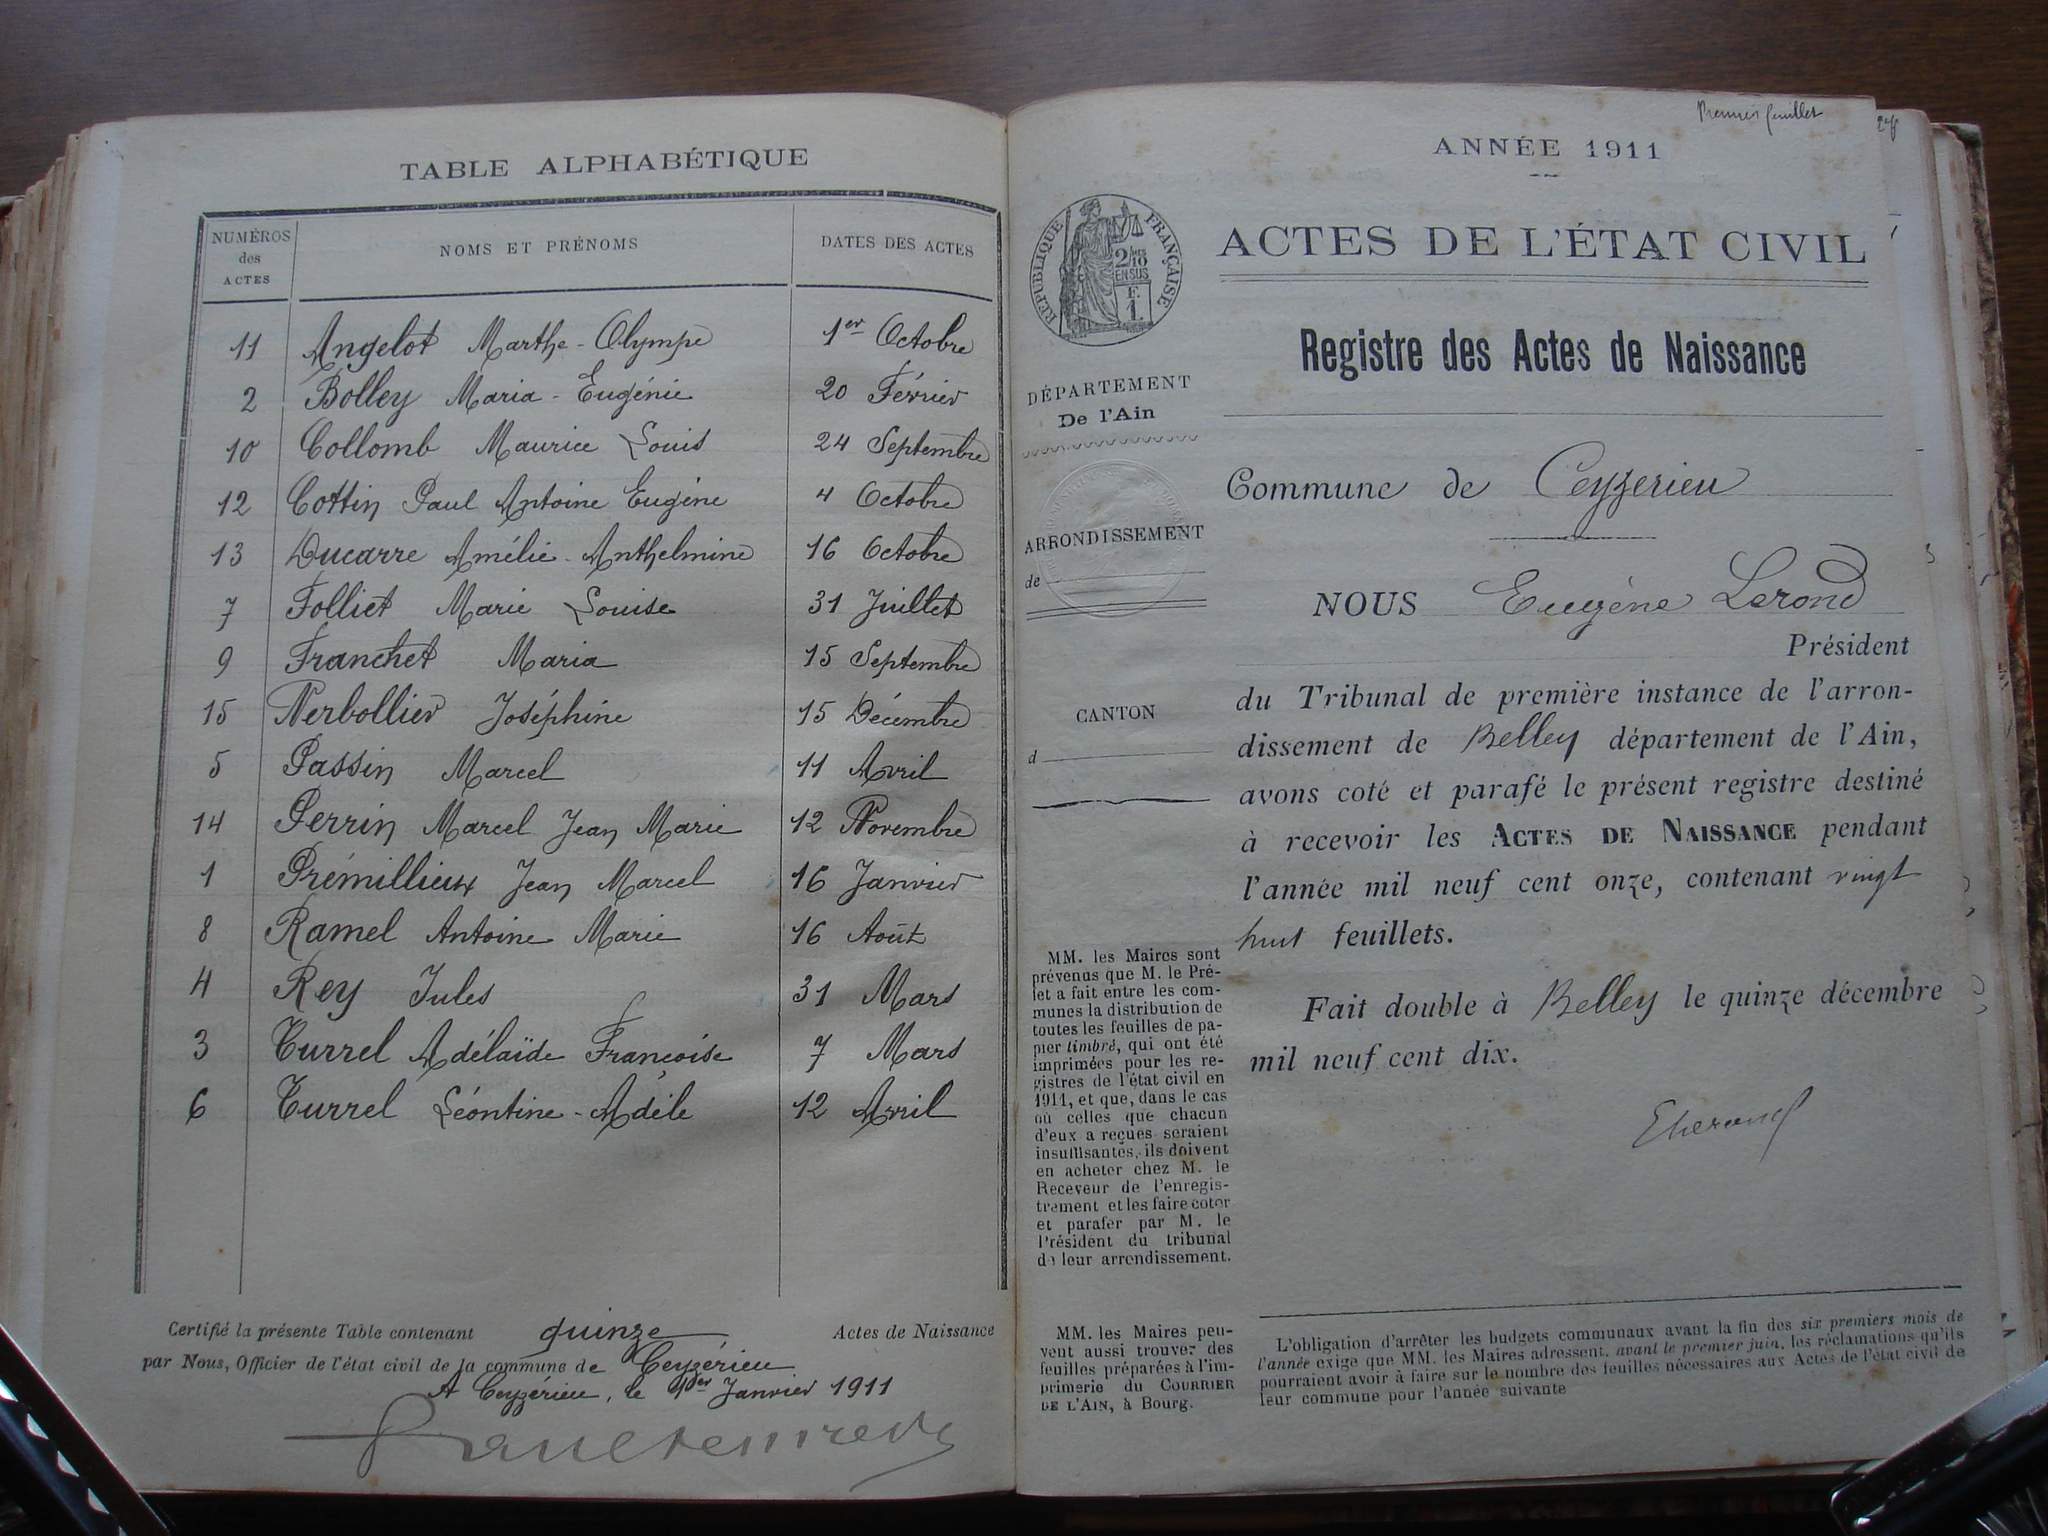 TABLE ALPHABÉTIQUE
NUMÉROS des ACTES NOMS ET PRÉNOMS DATES DES ACTES
11 Angelot Marthe-Olympe 1er Octobre
2 Bolley Maria-Eugénie 20 Février
10 Collomb Maurice Louis 24 Septembre
12 Cottin Paul Antoine Eugène 4 Octobre
13 Ducarre Amélie-Anthelmine 16 Octobre
7 Folliet Marie Louise 31 Juillet
9 Franchet Maria 15 Septembre
15 Nerbollier Joséphine 15 Décembre
5 Passin Marcel 11 Avril
14 Perrin Marcel Jean Marie 12 Novembre
1 Prémillieux Jean Marcel 16 Janvier
8 Ramel Antoine Marie 16 Août
4 Rey Jules 31 Mars
3 Turrel Adélaïde Françoise 7 Mars
6 Turrel Léontine-Adèle 12 Avril
Certifié la présente Table contenant quinze Actes de Naissance
par Nous, Officier de l'état civil de la commune de Ceyzérieu
A Ceyzérieu, le 1er Janvier 1911
Premier feuillet
ANNÉE 1911
RÉPUBLIQUE FRANÇAISE
2/10
EN SUS
F.
1.
ACTES DE L'ÉTAT CIVIL
Registre des Actes de Naissance
DÉPARTEMENT
De l'Ain
ARRONDISSEMENT
de
CANTON
d
Commune de Ceyzerieu
NOUS Eugène Lerond
Président
du Tribunal de première instance de l'arron-
dissement de Belley département de l'Ain,
avons coté et parafé le présent registre destiné
à recevoir les ACTES DE NAISSANCE pendant
l'année mil neuf cent onze, contenant vingt
huit feuillets.
Fait double à Belley le quinze décembre
mil neuf cent dix.
MM. les Maires sont
prévenus que M. le Pré-
fet a fait entre les com-
munes la distribution de
toutes les feuilles de pa-
pier timbré, qui ont été
imprimées pour les re-
gistres de l'état civil en
1911, et que, dans le cas
où celles que chacun
d'eux a reçues seraient
insuffisantes, ils doivent
en acheter chez M. le
Receveur de l'enregis-
trement et les faire coter
et parafer par M. le
Président du tribunal
de leur arrondissement.
MM. les Maires peu-
vent aussi trouver des
feuilles préparées à l'im-
primerie du COURRIER
DE L'AIN, à Bourg.
L'obligation d'arrêter les budgets communaux avant la fin des six premiers mois de
l'année exige que MM. les Maires adressent, avant le premier juin, les réclamations qu'ils
pourraient avoir à faire sur le nombre des feuilles nécessaires aux Actes de l'état civil de
leur commune pour l'année suivante